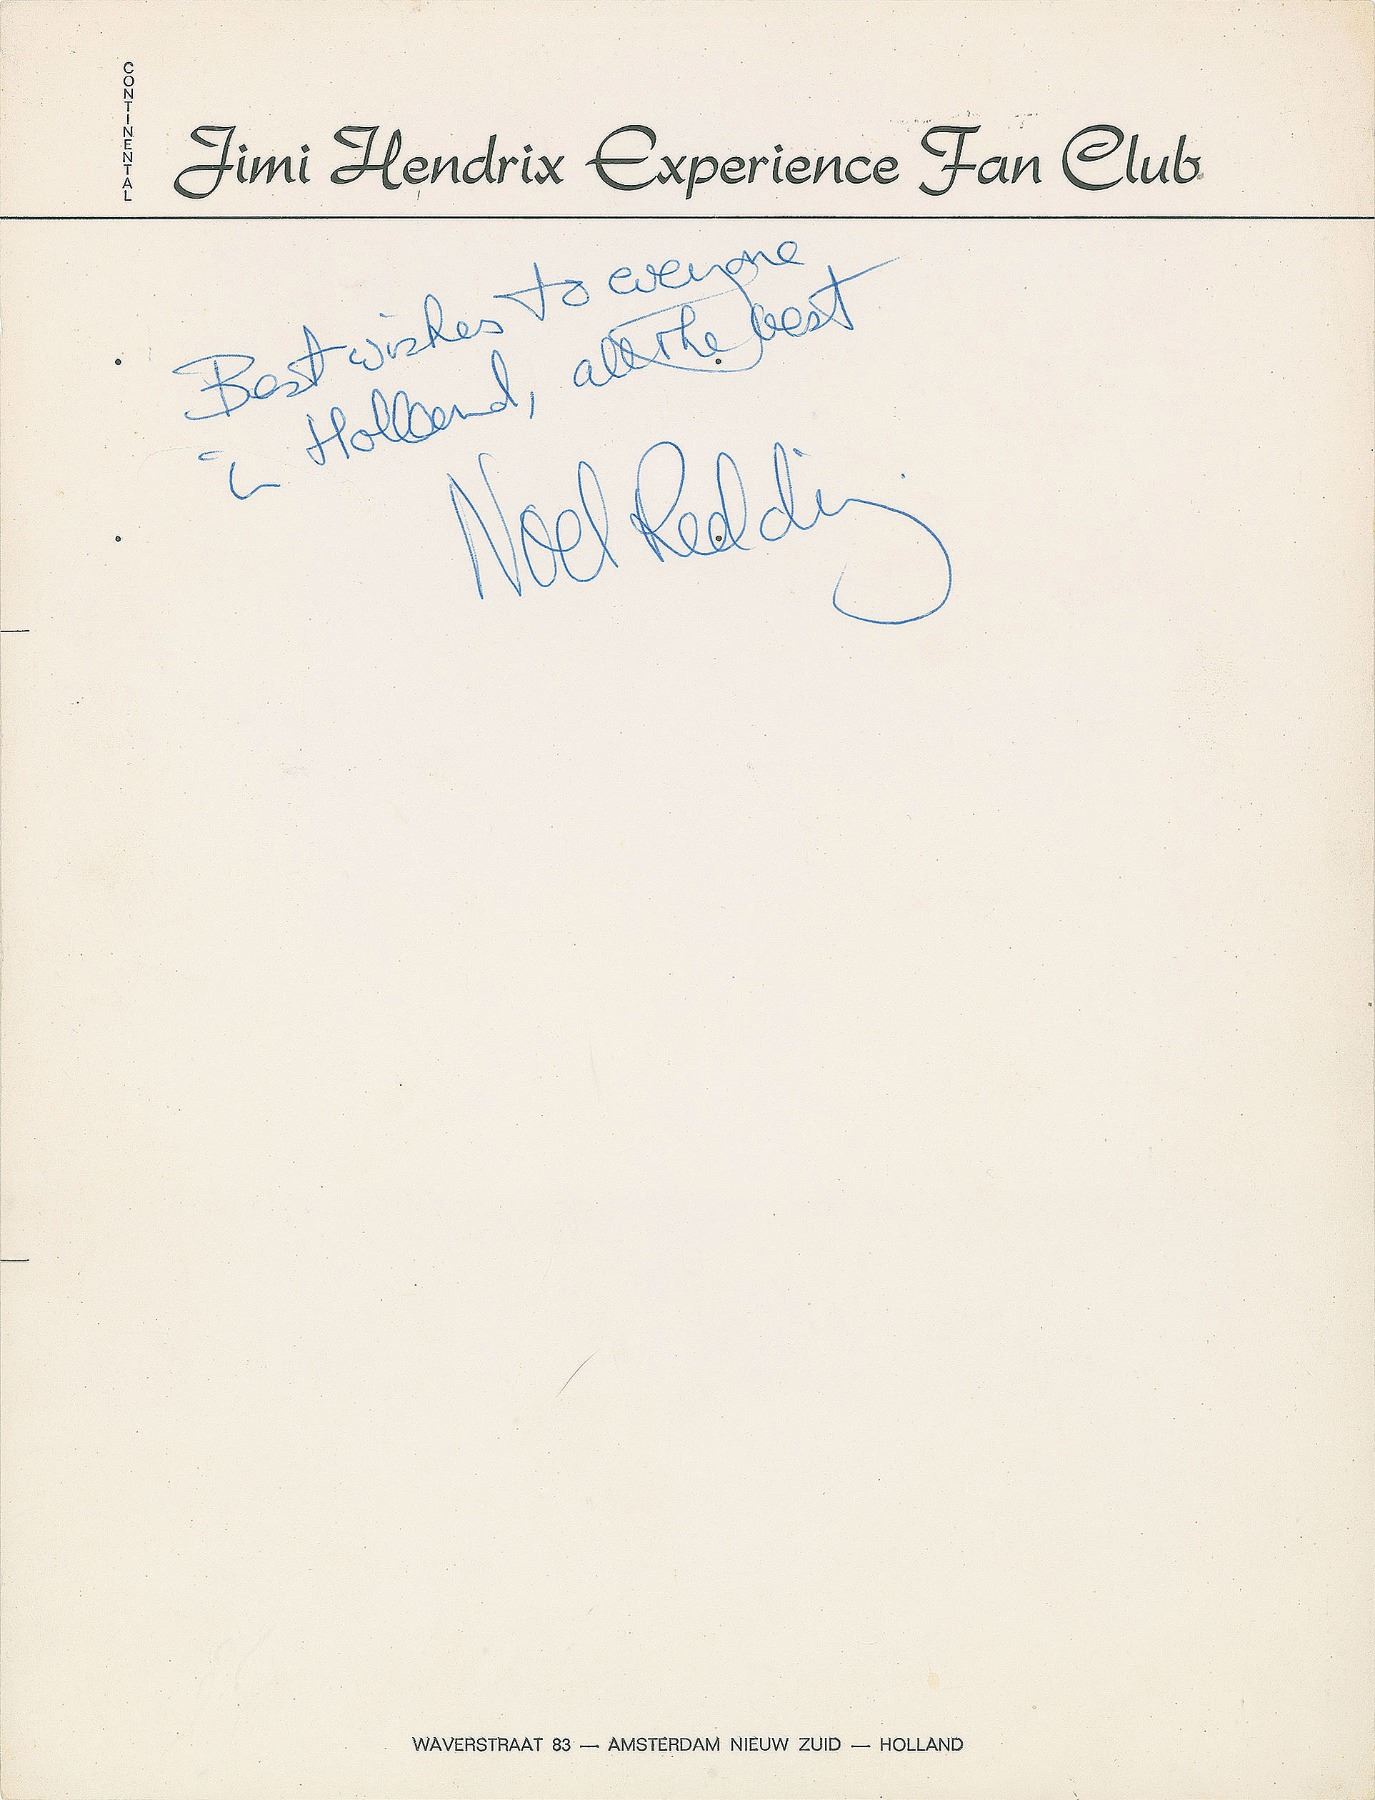 CONTINENTAL
Jimi Hendrix Experience Fan Club
Best wishes to everyone
in Holland, all the best
Noel Redding
WAVERSTRAAT 83 — AMSTERDAM NIEUW ZUID — HOLLAND